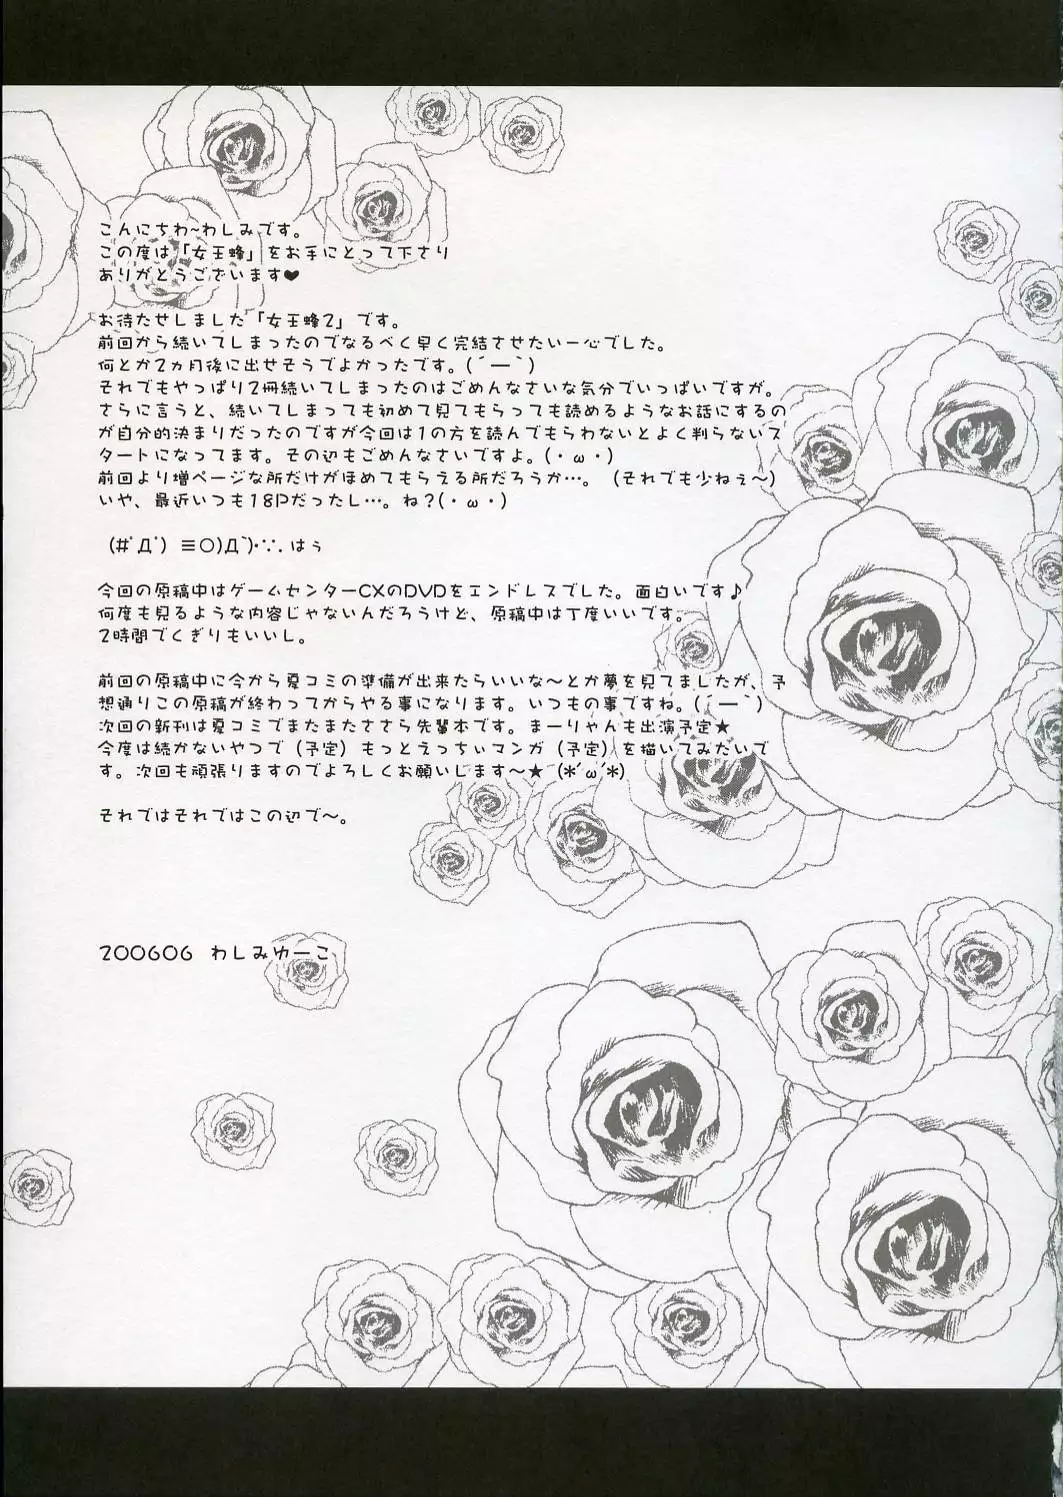 こんにちわ~わしみです。
この度は「女王蜂」をお手にとって下さり
ありがとうございます♥
お待たせしました「女王蜂2」です。
前回から続いてしまったのでなるべく早く完結させたい一心でした。
何とか2ヵ月後に出せそうでよかったです。(´ー｀)
それでもやっぱり2冊続いてしまったのはごめんなさいな気分でいっぱいですが。
さらに言うと、続いてしまっても初めて見てもらっても読めるようなお話にするの
が自分的決まりだったのですが今回は1の方を読んでもらわないとよく判らないス
タートになってます。その辺もごめんなさいですよ。(・ω・)
前回より増ページな所だけがほめてもらえる所だろうか…。（それでも少ねぇ～）
いや、最近いつも18Pだったし…。ね?(・ω・)
(#ﾟДﾟ) ≡〇)Д`)･∵. はぅ
今回の原稿中はゲームセンターCXのDVDをエンドレスでした。面白いです♪
何度も見るような内容じゃないんだろうけど、原稿中は丁度いいです。
2時間でくぎりもいいし。
前回の原稿中に今から夏コミの準備が出来たらいいな～とか夢を見てましたが、予
想通りこの原稿が終わってからやる事になります。いつもの事ですね。(´ー｀)
次回の新刊は夏コミでまたまたささら先輩本です。まーりゃんも出演予定★
今度は続かないやつで（予定）もっとえっちぃマンガ（予定）を描いてみたいで
す。次回も頑張りますのでよろしくお願いします～★(*´ω`*)
それではそれではこの辺で～。
200606 わしみゆーこ